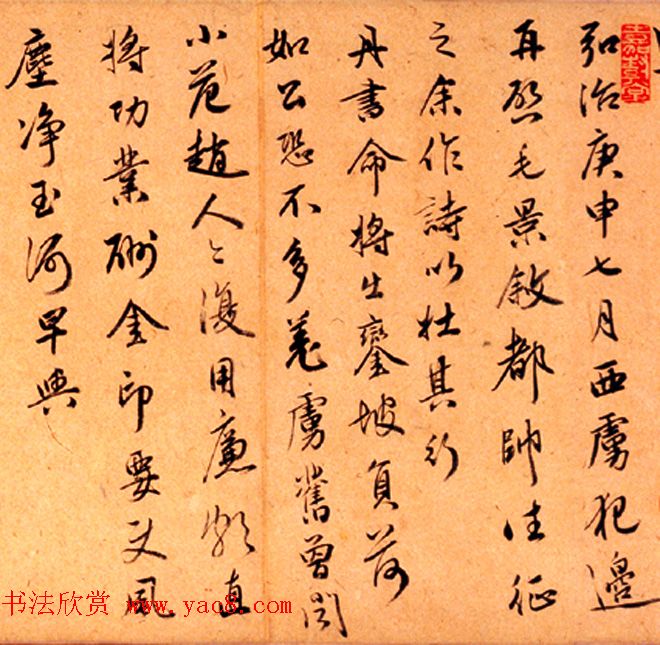 弘治庚申七月西虜犯邊
再啟毛景敘都帥往征
之余作詩以壯其行
丹書命將出鑾坡負荷
如公恐不多羌虜舊曾聞
小范趙人々復用廉頗直
將功業酬金印要使風
塵净玉河早與
书法欣赏 www.yao8.com